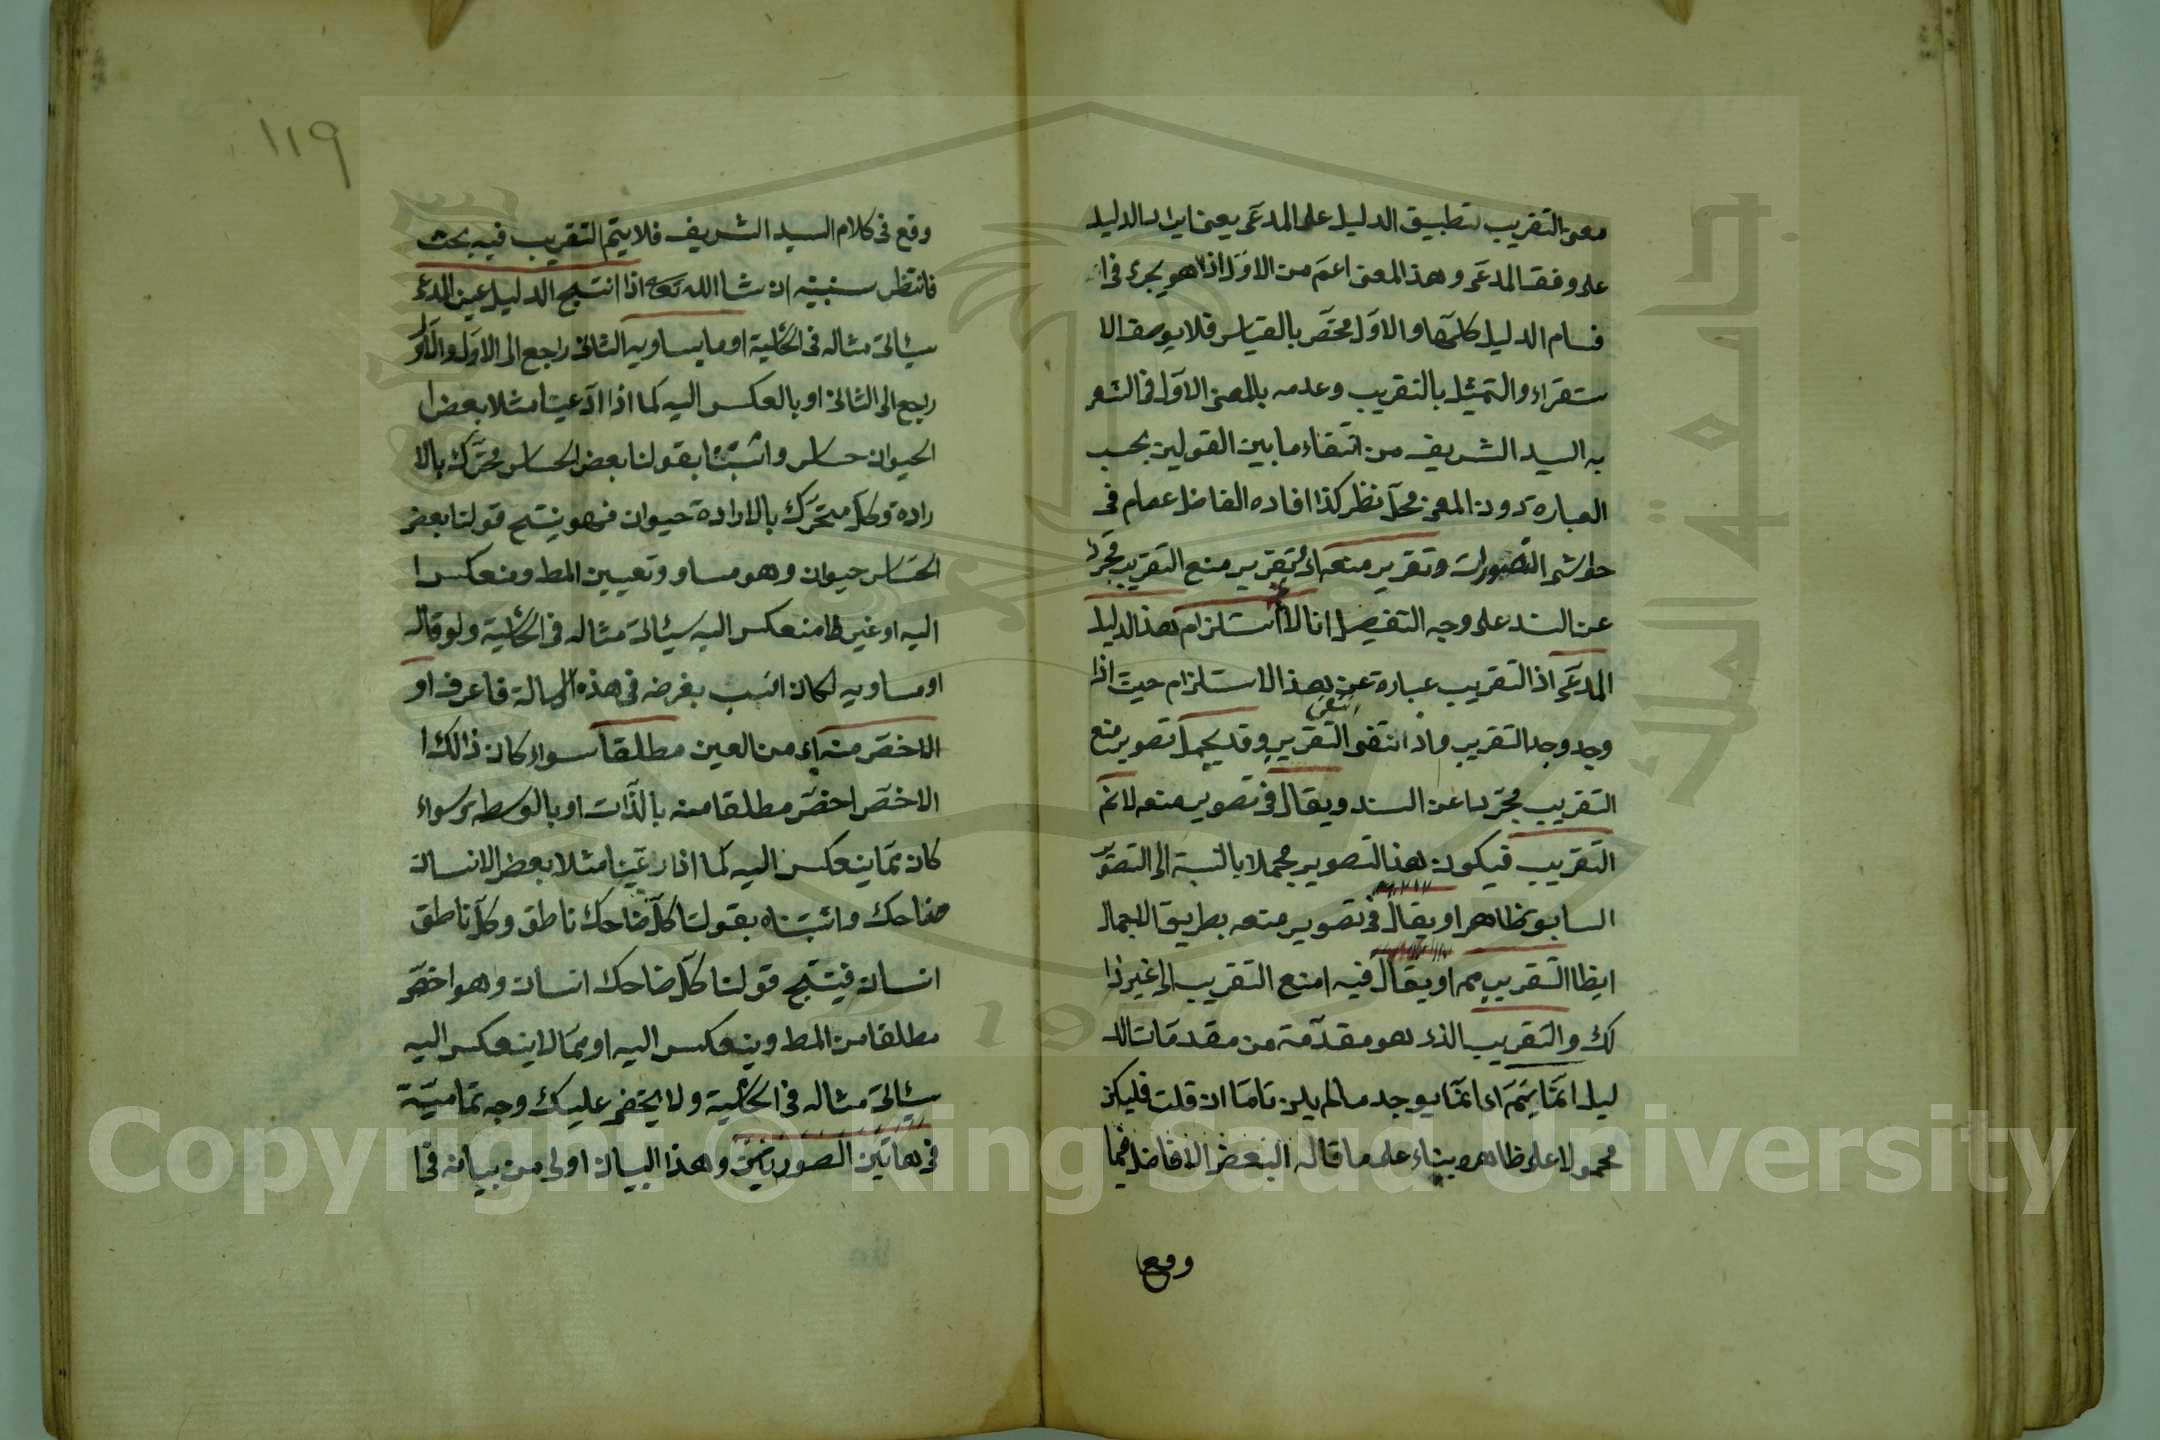 معنى التقريب تطبيق الدليل على المدعى يعنى ايراد الدليل
على وفق المدعى وهذا المعنى اعم من الاول اذ هو يجرى فى ا
قسام الدليل كلها والاول مختص بالقياس فلا يوصف الا
ستقراء والتمثيل بالتقريب وعدمه بالمعنى الاول فالشعر
به السيد الشريف من اتقاء ما بين القولين بحسب
العبارة دون المعنى محل نظر كذا افاده الفاضل عصام فى
حواشى التصورات وتقرير منعه اى تقرير منع التقريب مجردا
عن السند على وجه التفصيل انا لا استلزام هذا الدليل
المدعى اذ التقريب عبارة عن هذا الاستلزام حيث اذا
وجد وجد التقريب واذا انتفى انتفى التقريب وقد يجمل تصوير منع
التقريب مجردا عن السند ويقال فى تصوير منعه لا نم
التقريب فيكون هذا التصوير مجملا بالنسبة الى التصوير
السابق ظاهر او يقال فى تصوير منعه بطريق الاجمال
ايظا التقريب مم او يقال فيه امنع التقريب الى غير ذا
لك والتقريب الذى هو مقدمة من مقدمات الد
ليل انما يتم اى انما يوجد مالم يلزم تاما ان قلت فليكن
محمولا على ظاهره بناء على ما قاله البعض الافاضل فيما
وقع
١١٩
وقع فى كلام السيد الشريف فلا يتم التقريب فيه بحث
فانتظر سنبينه ان شا الله تع اذا انتج الدليل عين المدعى
سيأتى مثاله فى الحاشية او ما يساويه الثانى راجع الى الاول والاول
راجع الى الثانى او بالعكس اليه كما اذا ادعينا مثلا بعض ا
الحيوان حساس واثبتنا بقولنا بعض الحساس متحرك بالا
رادة وكل متحرك بالارادة حيوان فهو ينتج قولنا بعض
الحساس حيوان وهو مساو وتعيين المط ومنعكس ا
اليه او غير ظا منعكس اليه سيأتى مثاله فى الحاشية ولو قال
او مساويه لكان انسب بغرضه فى هذه الرسالة فاعرف او
الاخص منه اى من العين مطلقا سواء كان ذالك ا
الاخص اخص مطلقا منه بالذات او بالوسطه سواء
كان مما ينعكس اليه كما اذا ادعينا مثلا بعض الانسان
ضاحك واثبتناه بقولنا كل ضاحك ناطق وكل ناطق
انسان فينتج قولنا كل ضاحك انسان وهو اخص
مطلقا من المط وينعكس اليه او مما لا ينعكس اليه
سيأتى مثاله فى الحاشية ولا يخفى عليك وجه تمامية
فى هاتين الصورتين وهذا البيان اولى من بيانه فى ا
جامعة الملك سعود
19
Copyright © King Saud University